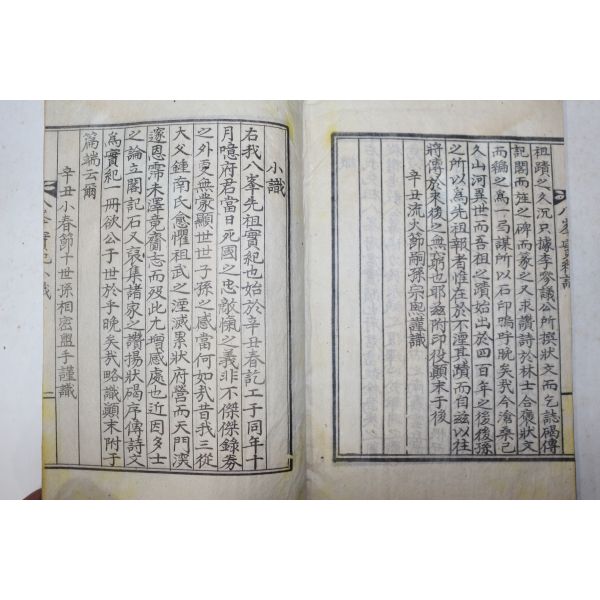 祖蹟之久沉只據李參議公所撰狀文而乞誌碣傳
記閣而竝之碑而篆之又求讚詩於林士合褒狀文
而編之爲一弓謀所以石印嗚呼晩矣我今滄桑已
久山河異世而吾祖之蹟始出於四百年之後後孫
之所以爲先祖報者惟在於不湮其蹟而自玆以往
將傳於來後之無窮也耶玆附印役顚末于後
辛丑流火節嗣孫宗思謹識
八峯實紀識
小識
右我八峯先祖實紀也始於辛丑春訖工于同年十
月噫府君當日死國之忠敵愾之義非不傑傑錄券
之外更無蒙顯世世子孫之感當何如哉昔我三從
大父鍾南氏愈懼祖武之湮滅累狀府營而天門漠
邃恩霈未澤竟齎志而歿此尤增感處也近因多士
之論立閣記石又裒集諸家之讚揚狀碣序傳詩文
爲實紀一冊欲公于世於乎晩矣哉略識顚末附于
篇端云爾
辛丑小春節十世孫相密盥手謹識
八峯實紀小識
二